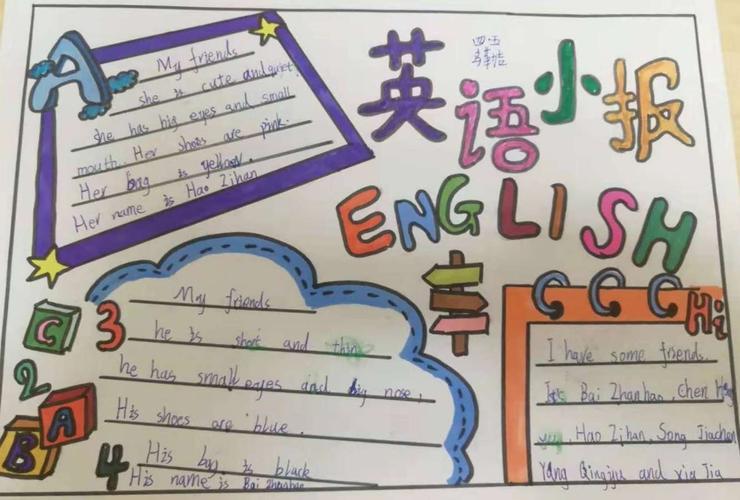 A
My friends
she is cute and quiet.
she has big eyes and small
mouth. Her shoes are pink.
Her bag is yellow.
Her name is Hao Zihan
英语小报
四·五
ENGLISH
My friends
he is short and thin
he has small eyes and big nose.
His shoes are blue.
His bag is black
His name is Bai Zhanhao
C
3
2
A
B
4
Hi
I have some friends.
It's Bai Zhanhao, Chen
yu, Hao Zihan, Song Jiachen
Yang Qingyu and xia Jia